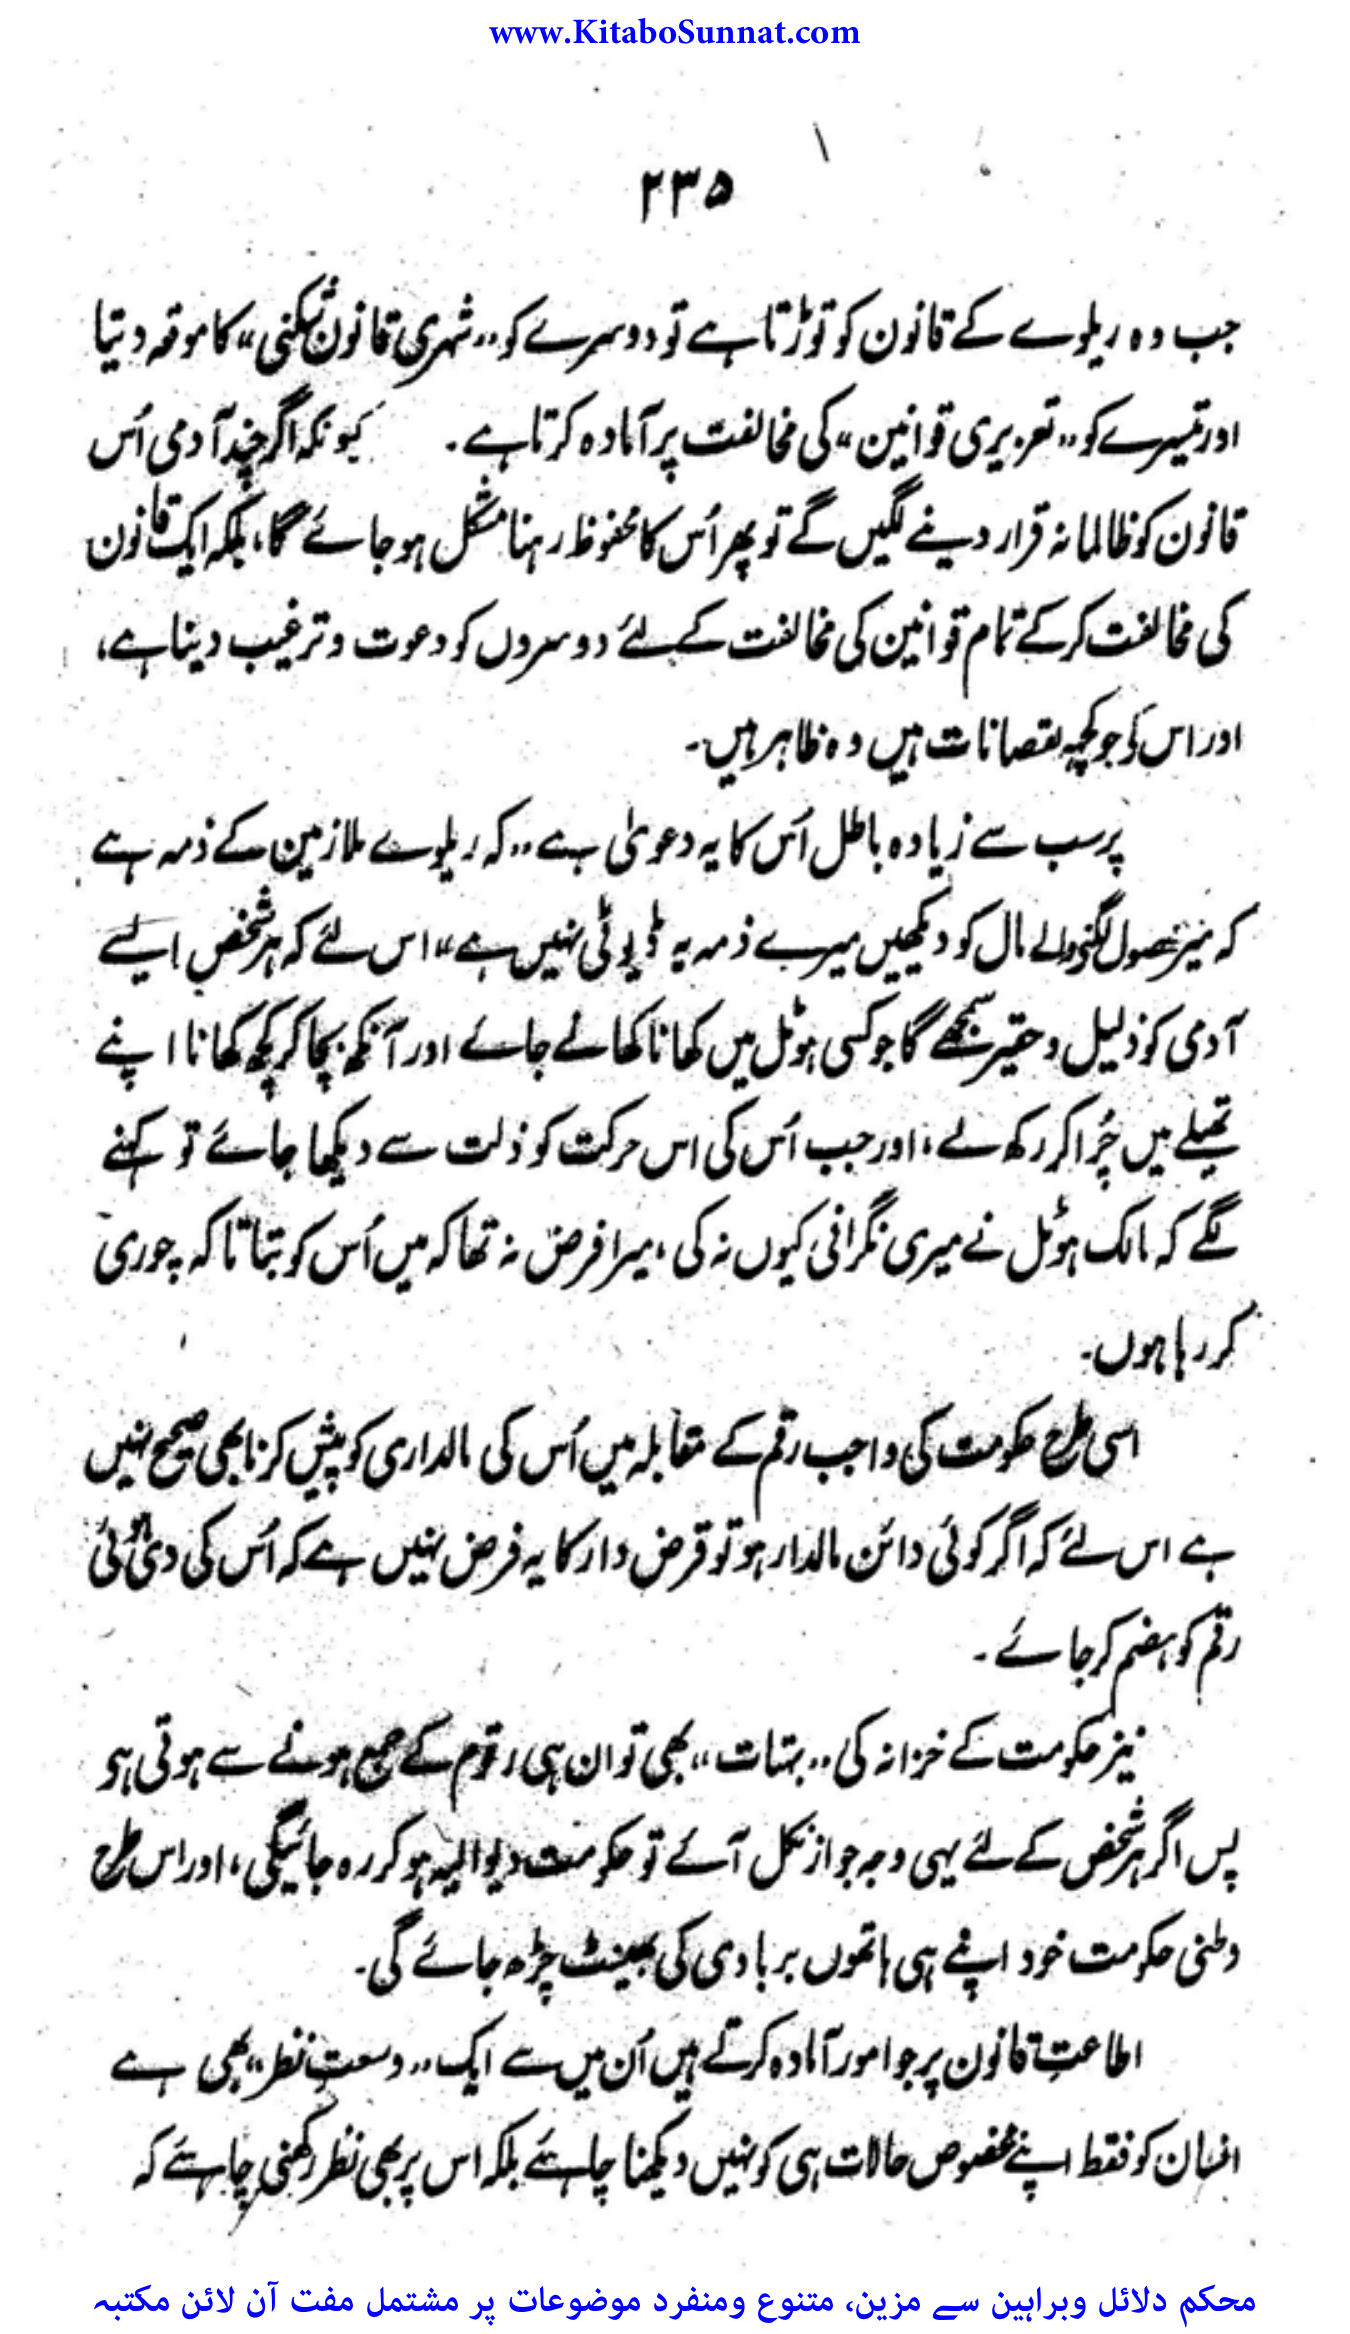 www.KitaboSunnat.com
۲۳۵
جب وہ ریلوے کے قانون کو توڑتا ہے تو دوسرے کو ،،شہری قانون شکنی،، کا موقہ دیتا
اور تیسرے کو ،،تعزیری قوانین،، کی مخالفت پر آمادہ کرتا ہے۔ کیونکہ اگر چند آدمی اُس
قانون کو ظالمانہ قرار دینے لگیں گے تو پھر اُس کا محفوظ رہنا مشکل ہو جائے گا، بلکہ ایک قانون
کی مخالفت کر کے تمام قوانین کی مخالفت کے لئے دوسروں کو دعوت و ترغیب دینا ہے،
اور اس کے جو کچھ نقصانات ہیں وہ ظاہر ہیں۔
پر سب سے زیادہ باطل اُس کا یہ دعویٰ ہے ،،کہ ریلوے ملازمین کے ذمہ ہے
کہ میرے محصول لگنے والے مال کو دیکھیں میرے ذمہ یہ ڈیوٹی نہیں ہے،، اس لئے کہ ہر شخص ایسے
آدمی کو ذلیل و حقیر سمجھے گا جو کسی ہوٹل میں کھانا کھانے جائے اور آنکھ بچا کر کچھ کھانا اپنے
تھیلے میں چُرا کر رکھ لے، اور جب اُس کی اس حرکت کو ذلت سے دیکھا جائے تو کہنے
لگے کہ مالک ہوٹل نے میری نگرانی کیوں نہ کی، میرا فرض نہ تھا کہ میں اُس کو بتاتا کہ چوری
کر رہا ہوں۔
اسی طرح حکومت کی واجب رقم کے مقابلہ میں اُس کی مالداری کو پیش کرنا بھی صحیح نہیں
ہے اس لئے کہ اگر کوئی دائن مالدار ہو تو قرض دار کا یہ فرض نہیں ہے کہ اُس کی دی ہوئی
رقم کو ہضم کر جائے۔
نیز حکومت کے خزانہ کی ،،بہتات،، بھی تو ان ہی رقوم کے جمع ہونے سے ہوتی ہو
پس اگر ہر شخص کے لئے یہی وجہ جواز نکل آئے تو حکومت دیوالیہ ہو کر رہ جائیگی، اور اس طرح
وطنی حکومت خود اپنے ہی ہاتھوں بربادی کی بھینٹ چڑھ جائے گی۔
اطاعتِ قانون پر جو امور آمادہ کرتے ہیں اُن میں سے ایک ،،وسعتِ نظر،، بھی ہے
انسان کو فقط اپنے مخصوص حالات ہی کو نہیں دیکھنا چاہئے بلکہ اس پر بھی نظر رکھنی چاہئے کہ
محکم دلائل وبراہین سے مزین، متنوع ومنفرد موضوعات پر مشتمل مفت آن لائن مکتبہ